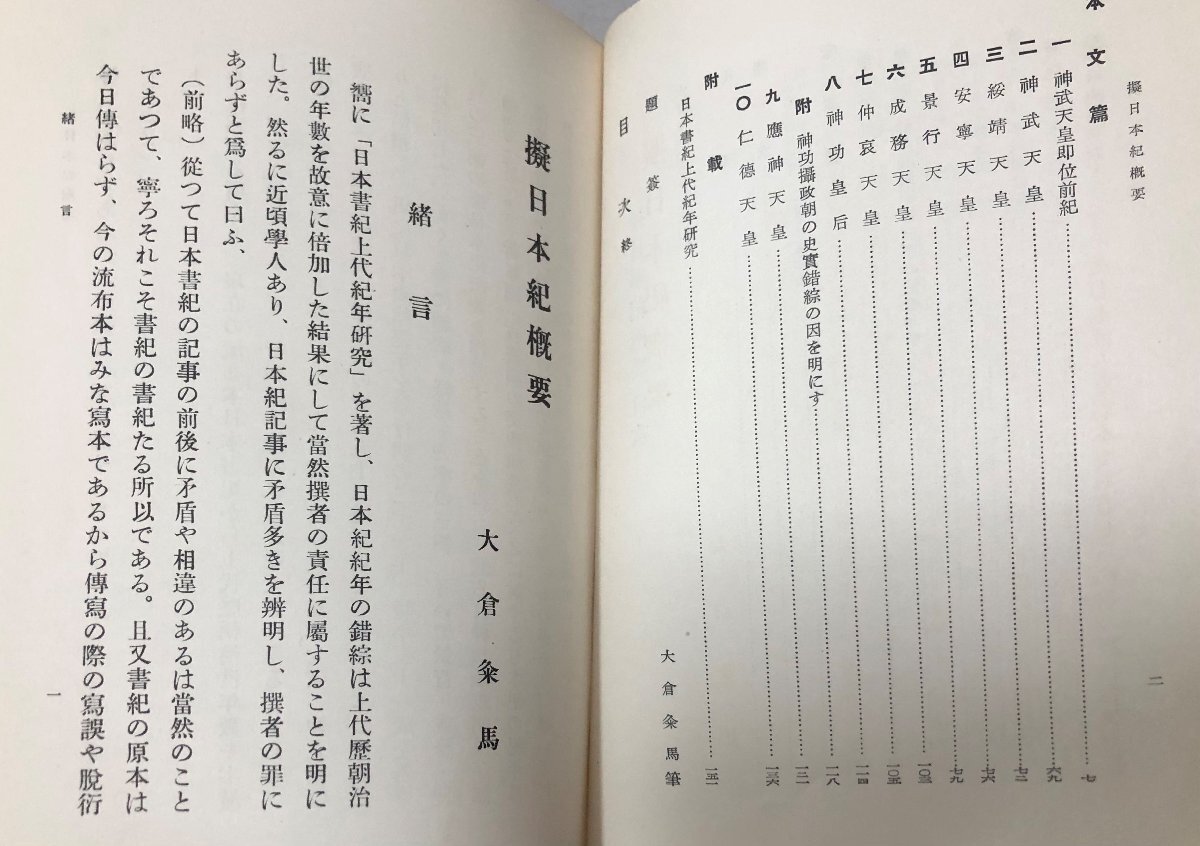 擬日本紀概要
二
本文篇
一 神武天皇即位前紀 七
二 神武天皇 六九
三 綏靖天皇 七二
四 安寧天皇 七六
五 景行天皇 七九
六 成務天皇 一〇三
七 仲哀天皇 一〇五
八 神功皇后 一一四
附 神功攝政朝の史實錯綜の因を明にす 一一八
九 應神天皇 一三一
一〇 仁德天皇 一三六
附載
日本書紀上代紀年硏究 一五一
題簽 大倉粂馬筆
目次終
擬日本紀槪要
大倉粂馬
緖言
嚮に「日本書紀上代紀年硏究」を著し、日本紀紀年の錯綜は上代歷朝治
世の年數を故意に倍加した結果にして當然撰者の責任に屬することを明に
した。然るに近頃學人あり、日本紀記事に矛盾多きを辨明し、撰者の罪に
あらずと爲して曰ふ、
(前略)從つて日本書紀の記事の前後に矛盾や相違のあるは當然のこと
であつて、寧ろそれこそ書紀の書紀たる所以である。且又書紀の原本は
今日傳はらず、今の流布本はみな寫本であるから傳寫の際の寫誤や脫衍
緖言
一